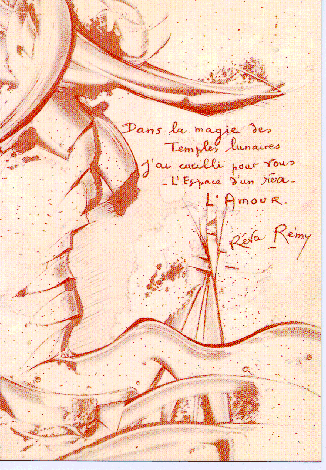 Dans la magie des
Temples lunaires
j'ai cueilli pour vous
- L'Espace d'un rêve -
L'AMOUR.
Réva Rémy